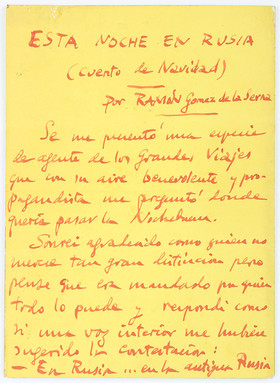 ESTA NOCHE EN RUSIA
(cuento de Navidad)
por RAMÓN Gómez de la Serna
Se me presentó una especie
de agente de los Grandes Viajes
que con su aire benevolente y pro-
pagandista me preguntó donde
quería pasar la Nochebuena.
Sonreí agradecido como quien no
merece tan gran distinción pero
pensé que era mandado por quien
todo lo puede y respondí como
si una voz interior me hubiera
sugerido la contestación:
- En Rusia ... en la antigua Rusia